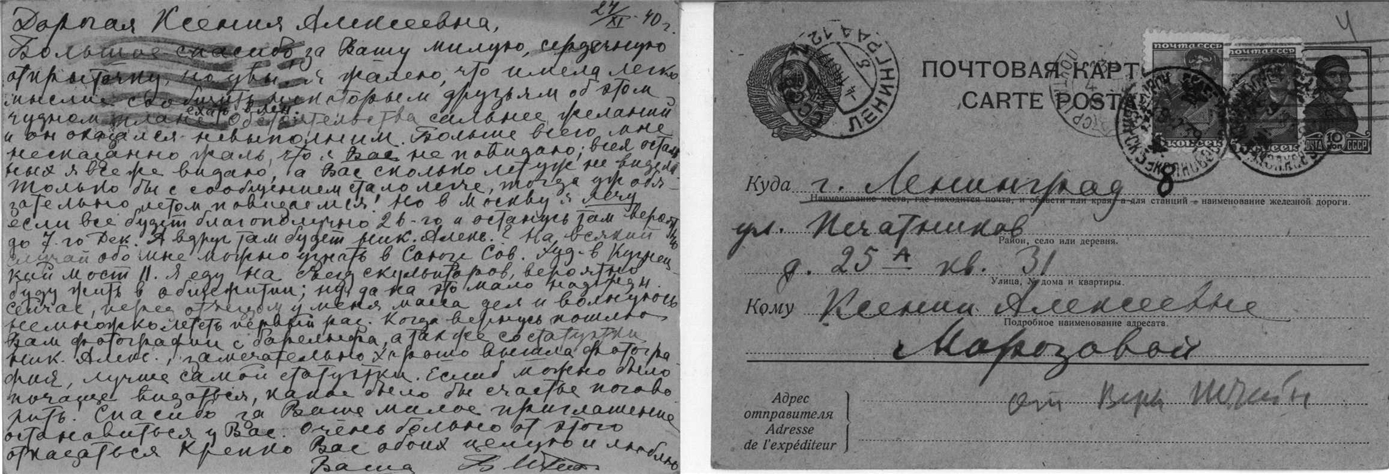 24/XI 40 г.
Дорогая Ксения Алексеевна,
Большое спасибо за Вашу милую, сердечную
открыточку, но увы я жалею, что имела легко
мыслие сообщить некоторым друзьям об этом
чудном плане, обстоятельства сильнее желаний
и он оказался невыполним. Больше всего мне
несказанно жаль, что с Вас не повидаю; всех осталь
ных я все же видаю, а Вас сколько лет уж не видела
Только бы с сообщением стало легче, тогда уж обя-
зательно летом повидаемся! Но в Москву я лечу
если все будет благополучно 26-го и останусь там вероятно
до 7-го Дек. А вдруг там будет Ник. Алекс.? На всякий
случай обо мне можно узнать в Союзе Сов. Худ-в Кузнец-
кий мост 11. Я еду на съезд скульпторов, вероятно
буду жить в общежитии; правда на это мало надежды.
Сейчас, перед отъездом у меня масса дел и волнуюсь
немножко лететь первый раз. Когда вернусь пошлю
Вам фотографии с барельефа, а также со статуэтки
Ник. Алекс., замечательно хорошо вышла фотогра
фия, лучше самой статуэтки. Если б можно было
почаще видаться, какое было бы счастье погово
рить! Спасибо за Ваше милое приглашение
остановиться у Вас. Очень больно от этого
отказаться Крепко Вас обоих целую и люблю
Ваша
ПОЧТОВАЯ КАРТ
CARTE POSTA
ПОЧТА СССР
ЛЕНИНГРАД
10 коп.
ПОЧТА СССР
8
Куда г. Ленинград
Наименование места, где находится почта, и области или края, а для станций - наименование железной дороги.
ул. Печатников
Район, село или деревня.
д. 25 А кв. 31
Улица, № дома и квартиры.
Кому Ксении Алексеевне
Подробное наименование адресата.
Морозовой
Адрес
отправителя
Adresse
de l'expéditeur
от Веры